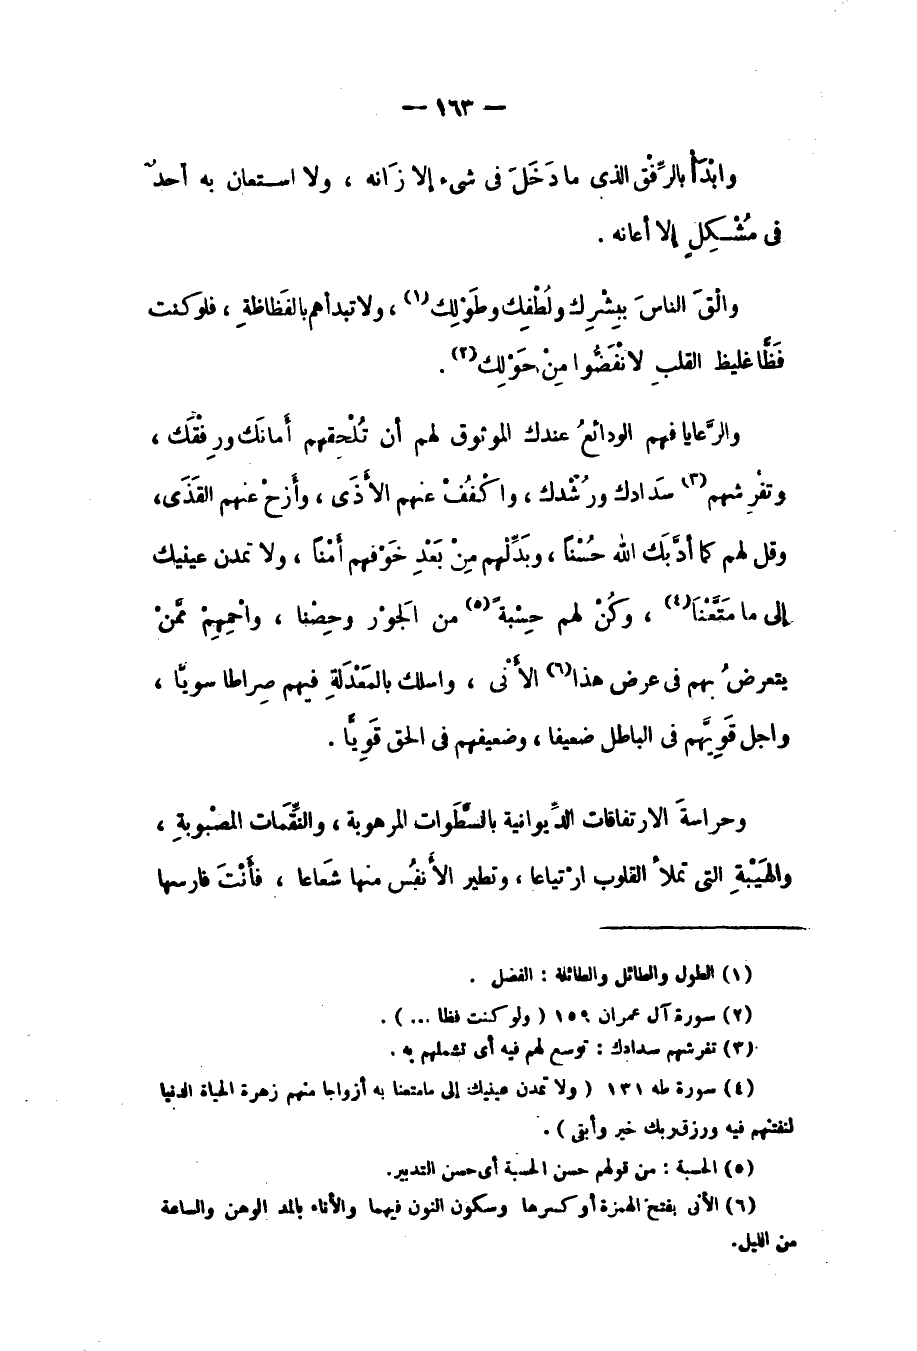 — ١٦٣ —
وابْدَأْ بالرِّفْق الذى ما دَخَلَ فى شىء إلا زَانه ، ولا استعان به أحدٌ
فى مُشْكِلٍ إلا أعانه .
والْقَ الناسَ ببِشْرِك ولُطْفِك وطَوْلِك(١) ، ولا تبدأهم بالفَظاظةِ ، فلو كنت
فَظًّا غليظ القلبِ لانْفَضُّوا مِنْ حَوْلِك(٢) .
والرَّعايا فهم الودائعُ عندك الموثوق لهم أن تُلْحِقهم أمانَك ورِفْقَك ،
وتفْرِشهم(٣) سَدَادك ورُشْدك ، واكْفُفْ عنهم الأَذَى ، وأَزِحْ عنهم القَذَى،
وقل لهم كما أدَّبَك الله حُسْنًا ، وبَدِّلْهم مِنْ بَعْدِ خَوْفهم أَمْنًا ، ولا تمدن عينيك
إلى ما مَتَّعْنَا(٤) ، وكُنْ لهم حِسْبةً(٥) من الجَوْر وحِصْنا ، واحْمِهِمْ مِمَّنْ
يتعرضُ بهم فى عرض هذا(٦) الأَنْى ، واسلك بالمَعْدَلةِ فيهم صِراطا سويًّا ،
واجل قَوِيَّهم فى الباطل ضعيفا ، وضعيفهم فى الحق قَوِيًّا .
وحراسةَ الارتفاقات الدِّيوانية بالسَّطَوات المرهوبة ، والنَّقِمَات المصْبوبةِ ،
والهَيْبةِ التى تملأ القلوب ارْتياعا ، وتطير الأَنفُس منها شَعاعا ، فأَنْتَ فارسها
(١) الطول والطائل والطائلة : الفضل .
(٢) سورة آل عمران ١٥٩ ( ولو كنت فظا ... ) .
(٣) تفرشهم سدادك : توسع لهم فيه أى تشملهم به .
(٤) سورة طه ١٣١ ( ولا تمدن عينيك إلى مامتعنا به أزواجا منهم زهرة الحياة الدنيا
لنفتنهم فيه ورزق ربك خير وأبقى ) .
(٥) الحسبة : من قولهم حسن الحسبة أى حسن التدبير.
(٦) الأنى بفتح الهمزة أو كسرها وسكون النون فيهما والأناء بالمد الوهن والساعة
من الليل.